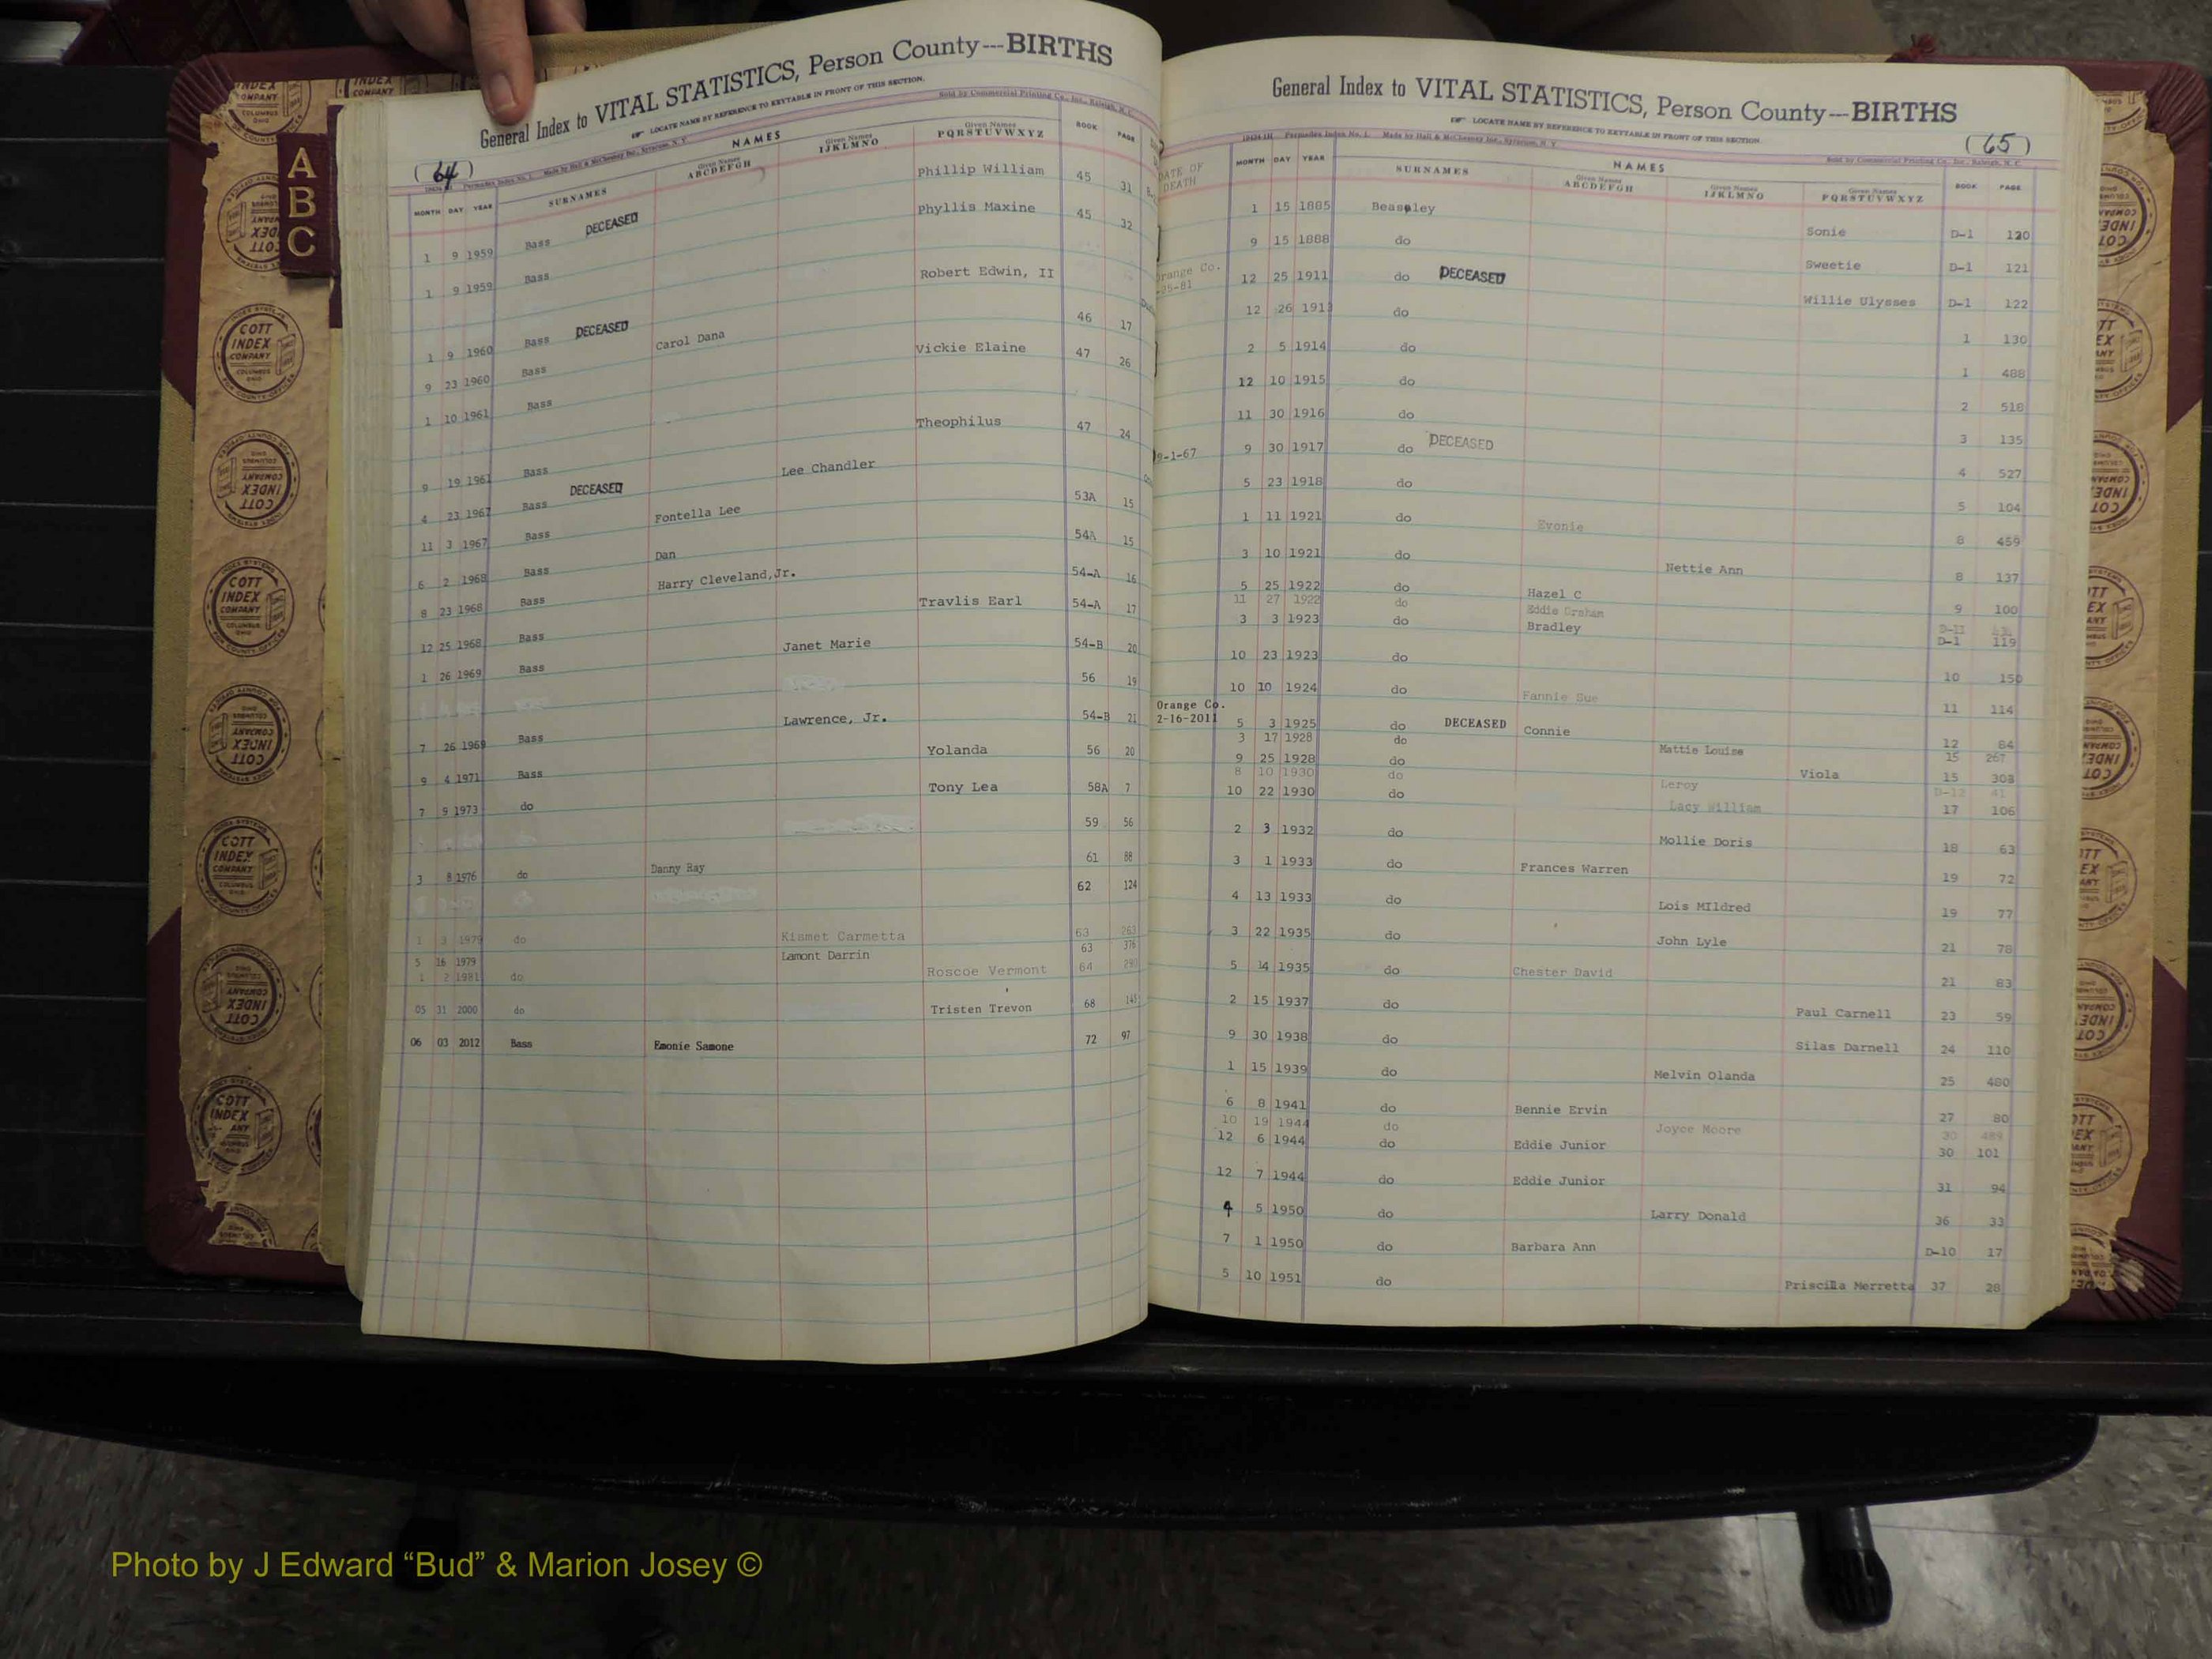 General Index to VITAL STATISTICS, Person County---BIRTHS
LOCATE NAME BY REFERENCE TO KEYTABLE IN FRONT OF THIS SECTION.
Sold by Commercial Printing Co., Inc., Raleigh, N. C.
(64)
MONTH DAY YEAR SURNAMES NAMES Given Names ABCDEFGH Given Names IJKLMNO Given Names PQRSTUVWXYZ BOOK PAGE
1 9 1959 Bass DECEASED Phillip William 45 31
1 9 1959 Bass Phyllis Maxine 45 32
1 9 1960 Bass DECEASED Robert Edwin, II 46 17
9 23 1960 Bass Carol Dana 47 26
1 10 1961 Bass Vickie Elaine 47 24
9 19 1961 Bass Theophilus
4 23 1967 Bass DECEASED Lee Chandler 53A 15
11 3 1967 Bass Fontella Lee 54A 15
6 2 1968 Bass Dan 54-A 16
8 23 1968 Bass Harry Cleveland, Jr. 54-A 17
12 25 1968 Bass Travlis Earl 54-B 20
1 26 1969 Bass Janet Marie 56 19
54-B 21
7 26 1969 Bass Lawrence, Jr. 56 20
9 4 1971 Bass Yolanda 58A 7
7 9 1973 do Tony Lea 59 56
61 88
3 8 1976 do Danny Ray 62 124
1 3 1979 do Kismet Carmetta 63 263
5 16 1979 Lamont Darrin 63 376
1 2 1981 do Roscoe Vermont 64 290
05 31 2000 do Tristen Trevon 68
06 03 2012 Bass Emonie Samone 72 97
A
B
C
COTT INDEX COMPANY COLUMBUS OHIO
General Index to VITAL STATISTICS, Person County---BIRTHS
LOCATE NAME BY REFERENCE TO KEYTABLE IN FRONT OF THIS SECTION.
Made by Hall & McChesney Inc., Syracuse, N. Y.
Sold by Commercial Printing Co., Inc., Raleigh, N. C.
(65)
DATE OF DEATH MONTH DAY YEAR SURNAMES NAMES Given Names ABCDEFGH Given Names IJKLMNO Given Names PQRSTUVWXYZ BOOK PAGE
1 15 1885 Beasley Sonie D-1 120
9 15 1888 do Sweetie D-1 121
Orange Co.
12 25 1911 do DECEASED Willie Ulysses D-1 122
12 26 1913 do 1 130
2 5 1914 do 1 488
12 10 1915 do 2 518
11 30 1916 do 3 135
9-1-67 9 30 1917 do DECEASED 4 527
5 23 1918 do 5 104
1 11 1921 do Evonie 8 459
3 10 1921 do Nettie Ann 8 137
5 25 1922 do Hazel C 9 100
11 27 1922 do Eddie Graham D-11
3 3 1923 do Bradley D-1 119
10 23 1923 do 10 150
10 10 1924 do Fannie Sue 11 114
Orange Co.
2-16-2011 5 3 1925 do DECEASED Connie 12 84
3 17 1928 do Mattie Louise 15 267
9 25 1928 do Viola 15 303
8 10 1930 do Leroy D-12 41
10 22 1930 do Lacy William 17 106
2 3 1932 do Mollie Doris 18 63
3 1 1933 do Frances Warren 19 72
4 13 1933 do Lois MIldred 19 77
3 22 1935 do John Lyle 21 78
5 14 1935 do Chester David 21 83
2 15 1937 do Paul Carnell 23 59
9 30 1938 do Silas Darnell 24 110
1 15 1939 do Melvin Olanda 25 480
6 8 1941 do Bennie Ervin 27 80
10 19 1944 do Joyce Moore 30 489
12 6 1944 do Eddie Junior 30 101
12 7 1944 do Eddie Junior 31 94
4 5 1950 do Larry Donald 36 33
7 1 1950 do Barbara Ann D-10 17
5 10 1951 do Priscilla Merretta 37 28
Photo by J Edward “Bud” & Marion Josey ©